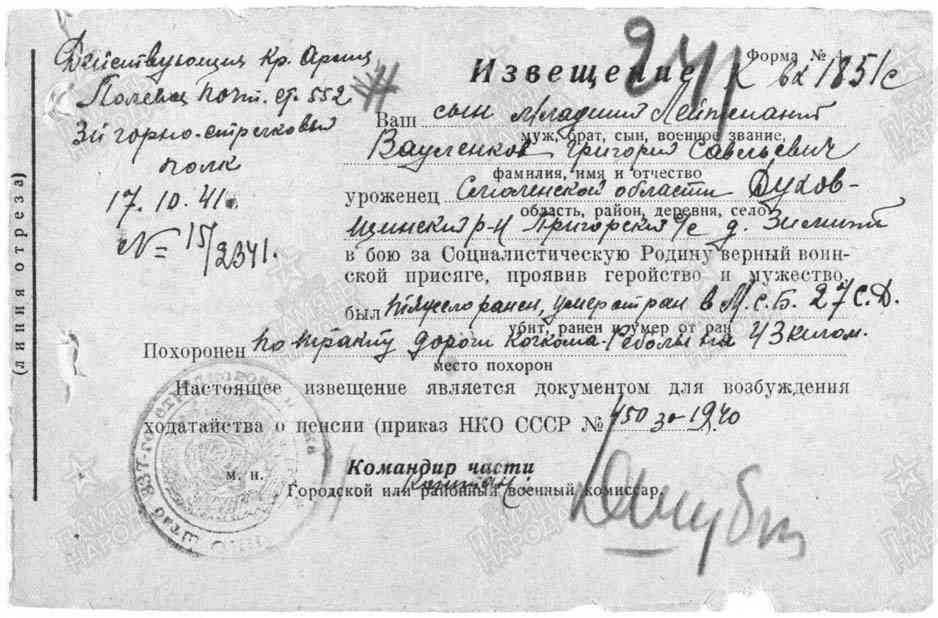 Действующая Кр. Армия
Полевая почт. ст. 552
3й горно-стрелковый
полк
17.10.41г.
№ 15/2341.
(линия отреза)
Форма №
к вх 1851с
Извещение
Ваш сын Младший Лейтенант
муж, брат, сын, военное звание,
Вауленков Григорий Савельевич
фамилия, имя и отчество
уроженец Смоленской области Духов-
область, район, деревня, село
щинский р-н Пригорский с/с д.
в бою за Социалистическую Родину верный воин-
ской присяге, проявив геройство и мужество,
был тяжело ранен, умер от ран в М.С.Б. 27 С.Д.
убит, ранен и умер от ран
Похоронен по тракту дороги Кочкома-Реболы на 43 килом.
место похорон
Настоящее извещение является документом для возбуждения
ходатайства о пенсии (приказ НКО СССР № 450 30 1940
Командир части
м. п.
Капитан
Городской или районный военный комиссар.
штаб 337-го
НКО